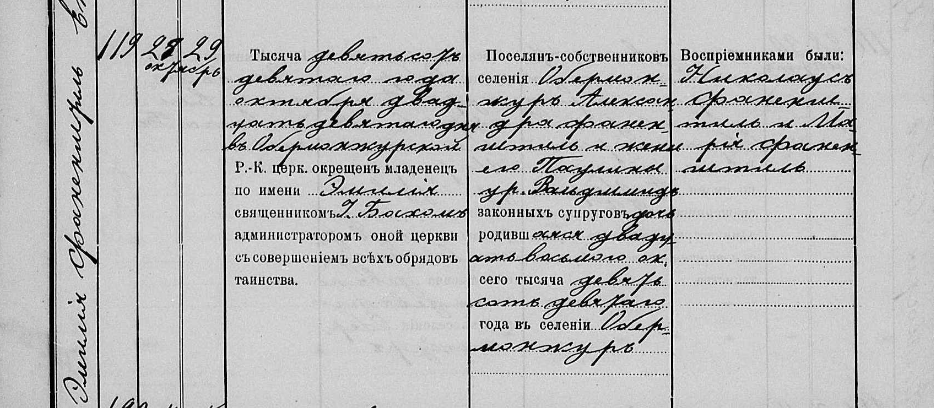 Эмилія Франкенштель
119
28 29
октябрь
Тысяча девятьсотъ
девятаго года
октября двад-
цать девятаго дня
въ Обермонжурской
Р.-К. церк. окрещен младенец
по имени Эмилія
священникомъ І. Бахомъ
администраторомъ оной церкви
съ совершеніемъ всѣхъ обрядовъ
таинства.
Поселянъ-собственниковъ
селенія Обермон-
журъ Алексан
дра Франкен-
штель и жены
его Паулины
ур. Вальдшмидъ
законныхъ супруговъ дочь
родившаяся двадц
ать восьмого ок.
сего тысяча девять
сотъ девятаго
года въ селеніи Обер-
монжуръ
Воспріемниками были:
Николаусъ
Франкен-
штель и Ма-
рія Франкен-
штель